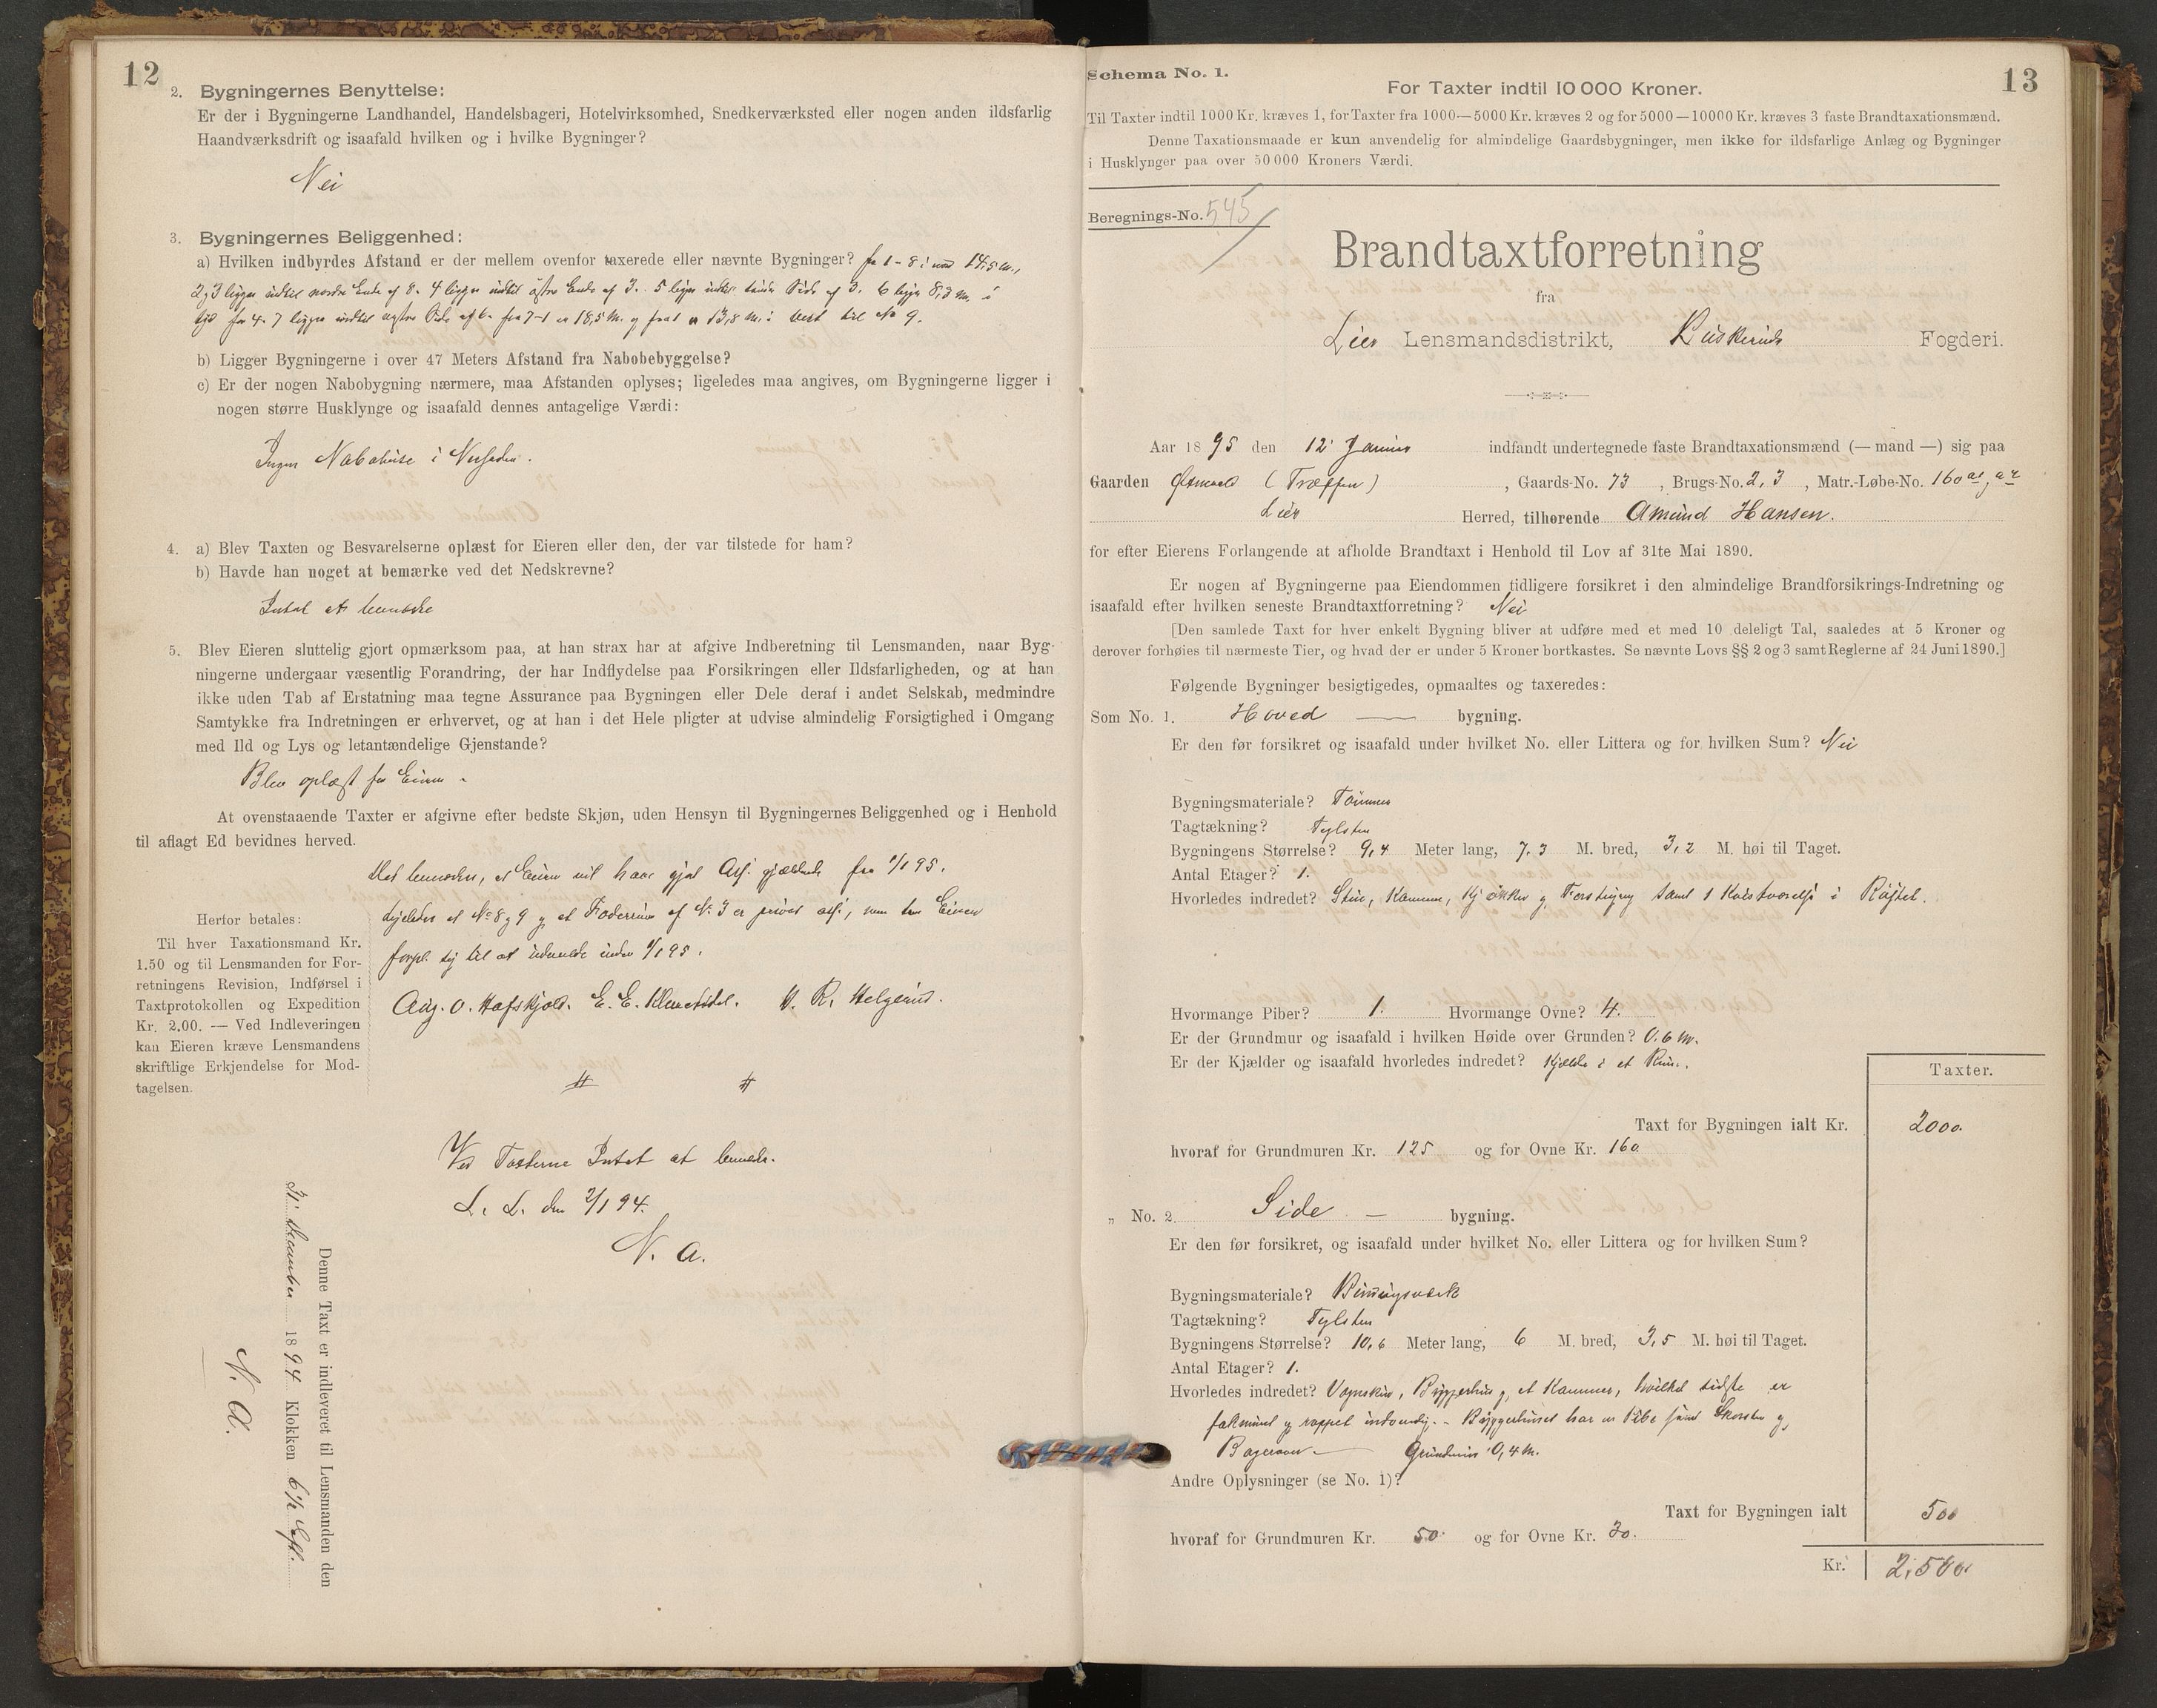 12
2. Bygningernes Benyttelse:
Er der i Bygningerne Landhandel, Handelsbageri, Hotelvirksomhed, Snedkerværksted eller nogen anden ildsfarlig
Haandværksdrift og isaafald hvilken og i hvilke Bygninger?
Nei
3. Bygningernes Beliggenhed:
a) Hvilken indbyrdes Afstand er der mellem ovenfor taxerede eller nævnte Bygninger? fra 1 - 8 i nord 14,5 m.,
2 og 3 ligger indtil nordre Ende af 8. 4 ligger indtil østre Ende af 3. 5 ligger indtil søndre Side af 3. 6 ligger 8,3 m. i
syd for 4. 7 ligger indtil vestre Side af 6. fra 7-1 er 18,5 M. og fra 1 er 13,8 m. i vest til No 9.
b) Ligger Bygningerne i over 47 Meters Afstand fra Nabobebyggelse?
c) Er der nogen Nabobygning nærmere, maa Afstanden oplyses; ligeledes maa angives, om Bygningerne ligger i
nogen større Husklynge og isaafald dennes antagelige Værdi:
Ingen Nabohuse i Nærheden.
4. a) Blev Taxten og Besvarelserne oplæst for Eieren eller den, der var tilstede for ham?
b) Havde han noget at bemærke ved det Nedskrevne?
Intet at bemærke
5. Blev Eieren sluttelig gjort opmærksom paa, at han strax har at afgive Indberetning til Lensmanden, naar Byg-
ningerne undergaar væsentlig Forandring, der har Indflydelse paa Forsikringen eller Ildsfarligheden, og at han
ikke uden Tab af Erstatning maa tegne Assurance paa Bygningen eller Dele deraf i andet Selskab, medmindre
Samtykke fra Indretningen er erhvervet, og at han i det Hele pligter at udvise almindelig Forsigtighed i Omgang
med Ild og Lys og letantændelige Gjenstande?
Blev oplæst for Eieren.
At ovenstaaende Taxter er afgivne efter bedste Skjøn, uden Hensyn til Bygningernes Beliggenhed og i Henhold
til aflagt Ed bevidnes herved.
Det bemærkes, at Eieren vil have gjort Ass. gjældende fra 1/1 95.
Ligeledes at No 8 og 9 og et Foderrum af No. 3 er privat ass., men som Eieren
forpl. sig til at udmelde inden 1/1 95.
Aug. O. Hafskjold. E. E. Klemetsdal. H. R. Helgerud.
Herfor betales:
Til hver Taxationsmand Kr.
1.50 og til Lensmanden for For-
retningens Revision, Indførsel i
Taxtprotokollen og Expedition
Kr. 2.00. — Ved Indleveringen
kan Eieren kræve Lensmandens
skriftlige Erkjendelse for Mod-
tagelsen.
Ved Taxterne Intet at bemærke.
L. L. den 2/1 94.
N. A.
Denne Taxt er indleveret til Lensmanden den
31 December 1894 Klokken 6 1/2 Eft.
N. A.
Schema No. 1.
13
For Taxter indtil 10 000 Kroner.
Til Taxter indtil 1000 Kr. kræves 1, for Taxter fra 1000—5000 Kr. kræves 2 og for 5000—10000 Kr. kræves 3 faste Brandtaxationsmænd.
Denne Taxationsmaade er kun anvendelig for almindelige Gaardsbygninger, men ikke for ildsfarlige Anlæg og Bygninger
i Husklynger paa over 50 000 Kroners Værdi.
Beregnings-No. 545
Brandtaxtforretning
fra
Lier Lensmandsdistrikt, Buskeruds Fogderi.
Aar 1895 den 12 Januar indfandt undertegnede faste Brandtaxationsmænd (—mand—) sig paa
Gaarden (Træffen), Gaards-No. 73, Brugs-No. 2, 3, Matr.-Løbe-No. 160
Lier Herred, tilhørende Amund Hansen.
for efter Eierens Forlangende at afholde Brandtaxt i Henhold til Lov af 31te Mai 1890.
Er nogen af Bygningerne paa Eiendommen tidligere forsikret i den almindelige Brandforsikrings-Indretning og
isaafald efter hvilken seneste Brandtaxtforretning? Nei
[Den samlede Taxt for hver enkelt Bygning bliver at udføre med et med 10 deleligt Tal, saaledes at 5 Kroner og
derover forhøies til nærmeste Tier, og hvad der er under 5 Kroner bortkastes. Se nævnte Lovs §§ 2 og 3 samt Reglerne af 24 Juni 1890.]
Følgende Bygninger besigtigedes, opmaaltes og taxeredes:
Som No. 1. Hoved — bygning.
Er den før forsikret og isaafald under hvilket No. eller Littera og for hvilken Sum? Nei
Bygningsmateriale? Tømmer
Tagtækning? Teglsten
Bygningens Størrelse? 9,4 Meter lang, 7,3 M. bred, 3,2 M. høi til Taget.
Antal Etager? 1.
Hvorledes indredet? Stue, Kammer, Kjøkken og Forstugang samt 1 Kvistværelse i Røstet.
Hvormange Piber? 1. Hvormange Ovne? 4.
Er der Grundmur og isaafald i hvilken Høide over Grunden? 0,6 m.
Er der Kjælder og isaafald hvorledes indredet? Kjælder i et Rum.
Taxter.
Taxt for Bygningen ialt Kr. 2000.
hvoraf for Grundmuren Kr. 125 og for Ovne Kr. 160
„ No. 2. Side — bygning.
Er den før forsikret, og isaafald under hvilket No. eller Littera og for hvilken Sum?
Bygningsmateriale? Bindingsværk
Tagtækning? Teglsten
Bygningens Størrelse? 10,6 Meter lang, 6 M. bred, 3,5 M. høi til Taget.
Antal Etager? 1.
Hvorledes indredet? Vognskur, Bryggerhus og et Kammer, hvilket sidste er
fakmuret og rappet indvendig. - Bryggerhuset har en Pibe samt Skorsten og
Bagerovn — Grundmur 0,4 m.
Andre Oplysninger (se No. 1)?
Taxt for Bygningen ialt 500
hvoraf for Grundmuren Kr. 50 og for Ovne Kr. 30.
Kr. 2,500